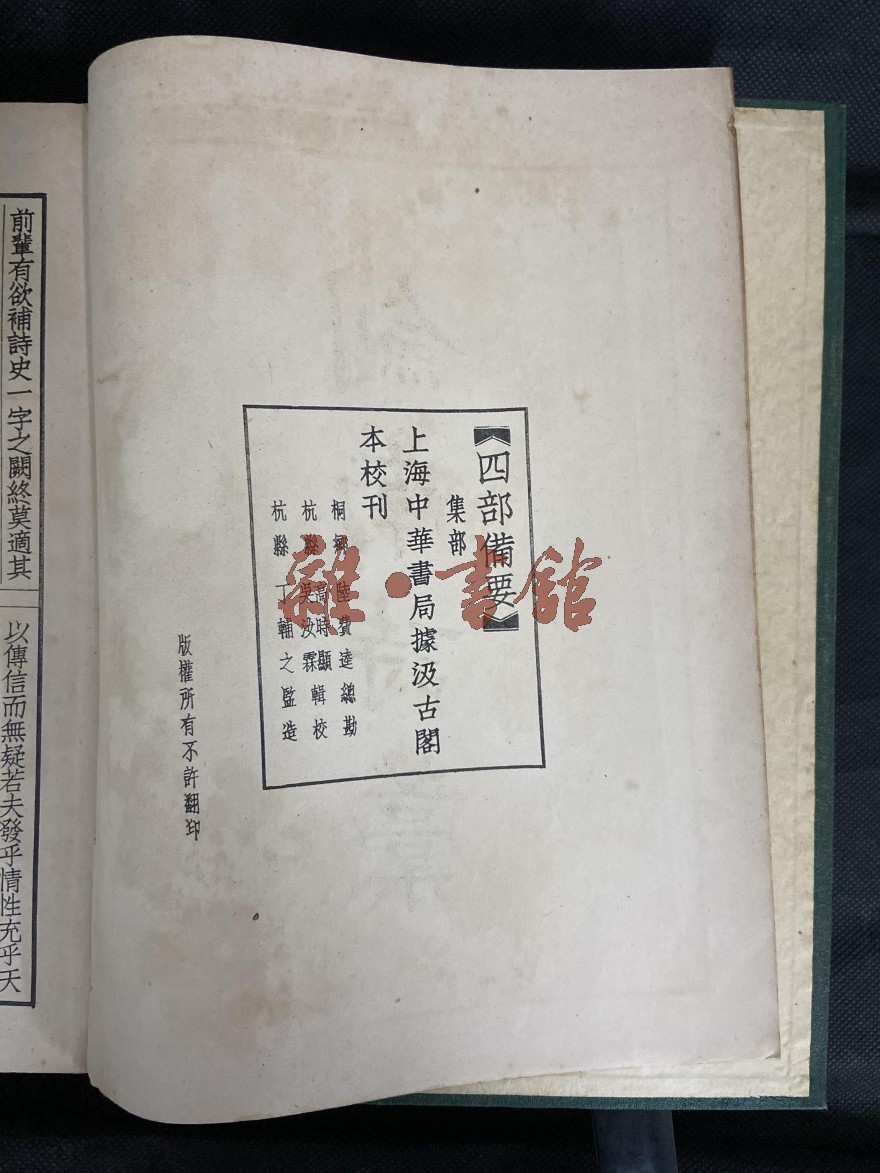 【四部備要】
集部
上海中華書局據汲古閣
本校刊
桐鄉 陸費逵 總勘
杭縣 高時顯 吳汝霖 輯校
杭縣 丁輔之 監造
版權所有不許翻印
前輩有欲補詩史一字之闕終莫適其
以傳信而無疑若夫發乎情性充乎天
雜·書館